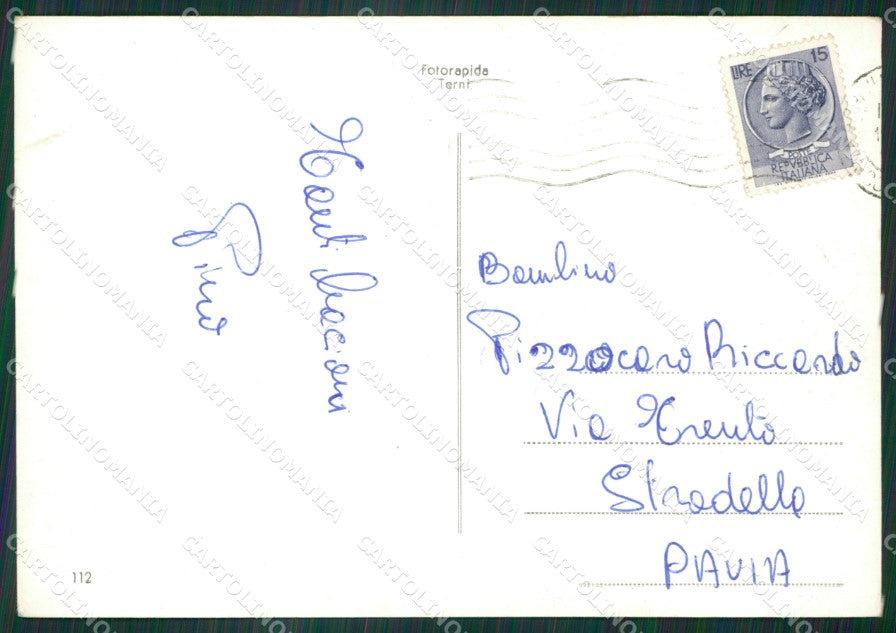 Fotorapida
Terni
LIRE 15
POSTE
REPVBBLICA
ITALIANA
Tanti bacioni
Pino
Bambino
Pizzocaro Riccardo
Via Trento
Stradella
PAVIA
112
CARTOLINOMANIA